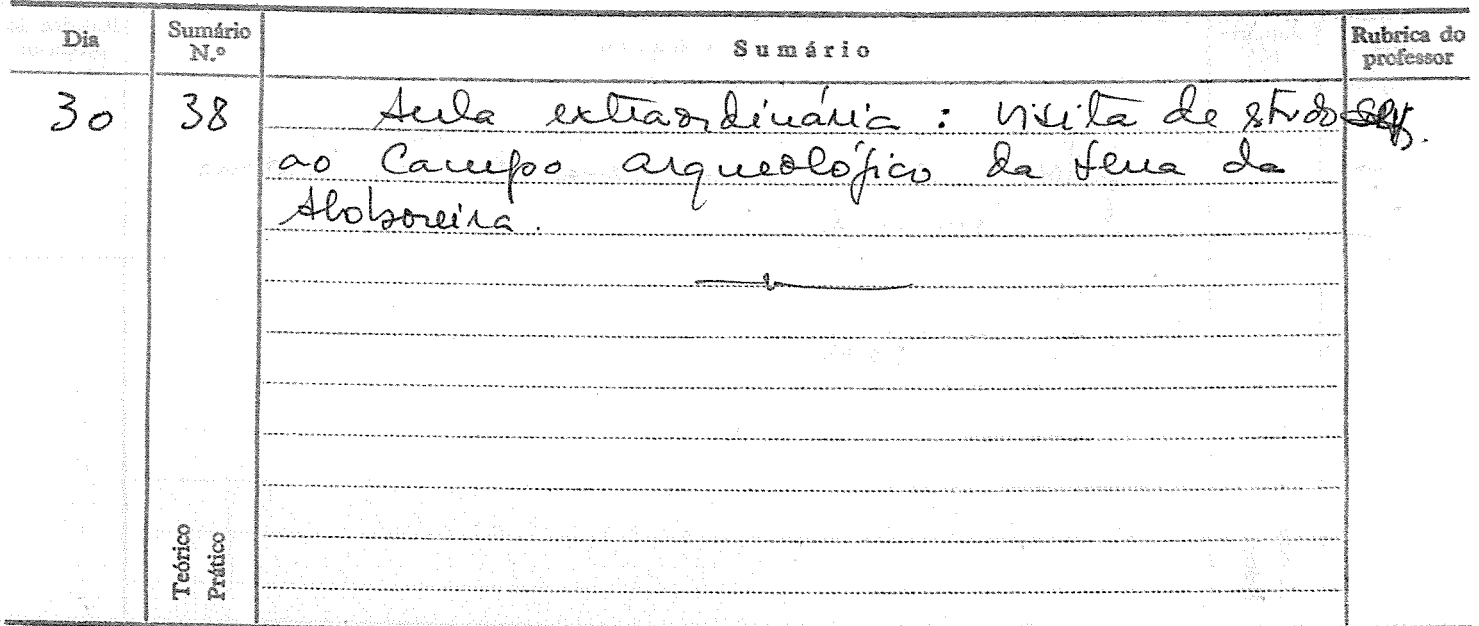 Dia Sumário N.º Sumário Rubrica do professor
30 38 Aula extraordinária : visita de studo
ao Campo arqueológico da Serra da
Aboboreira.
Teórico
Prático